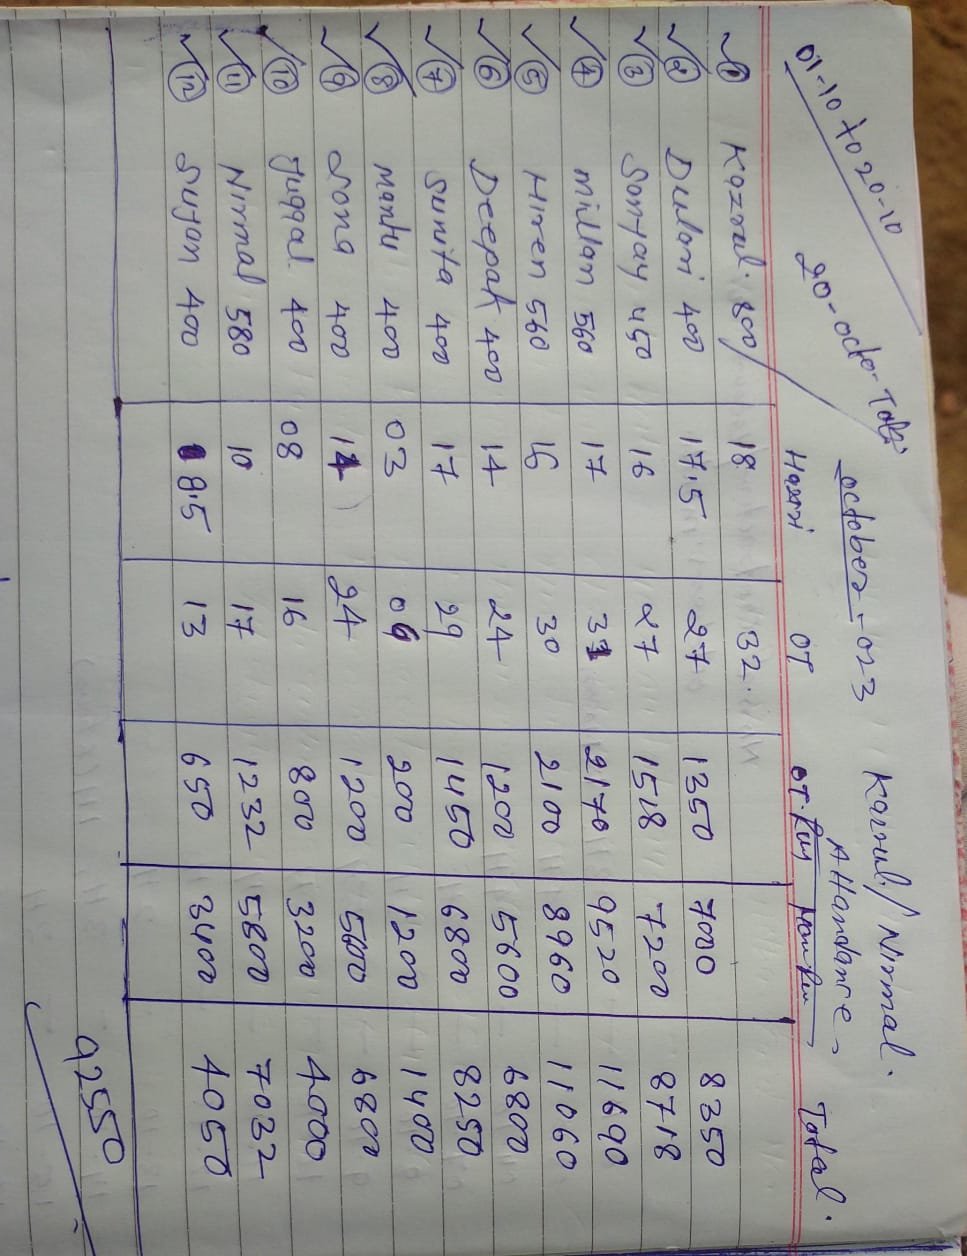 01-10 to 20-10 20-octo-Tak october-023 Karnal/Nirmal.
Attandance-
Hazri OT OT.Rm Total.
1 Kaznal. 800/ 18 32.
2 Dulari 400 17.5 27 1350 7000 8350
3 Sanjay 450 16 27 1518 7200 8718
4 millan 560 17 31 2170 9520 11690
5 Hiren 560 16 30 2100 8960 11060
6 Deepak 400 14 24 1200 5600 6800
7 Sunita 400 17 29 1450 6800 8250
8 mantu 400 03 04 200 1200 1400
9 Sona 400 14 24 1200 5600 6800
10 Juggal 400 08 16 800 3200 4000
11 Nirmal 580 10 17 1232 5800 7032
12 Sujan 400 8.5 13 650 3400 4050
92550